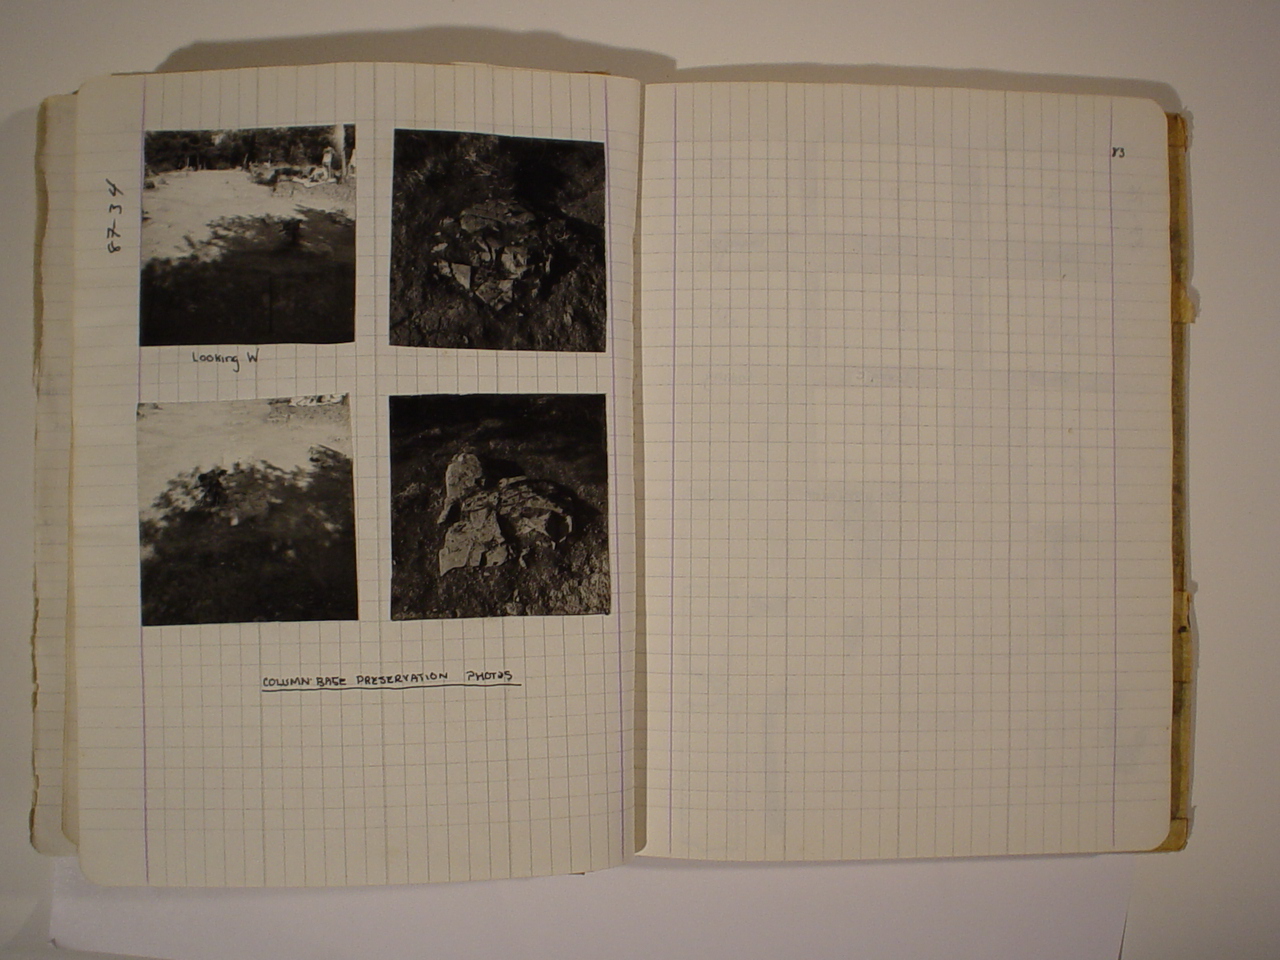 87-34
Looking W
COLUMN BASE PRESERVATION PHOTOS
83